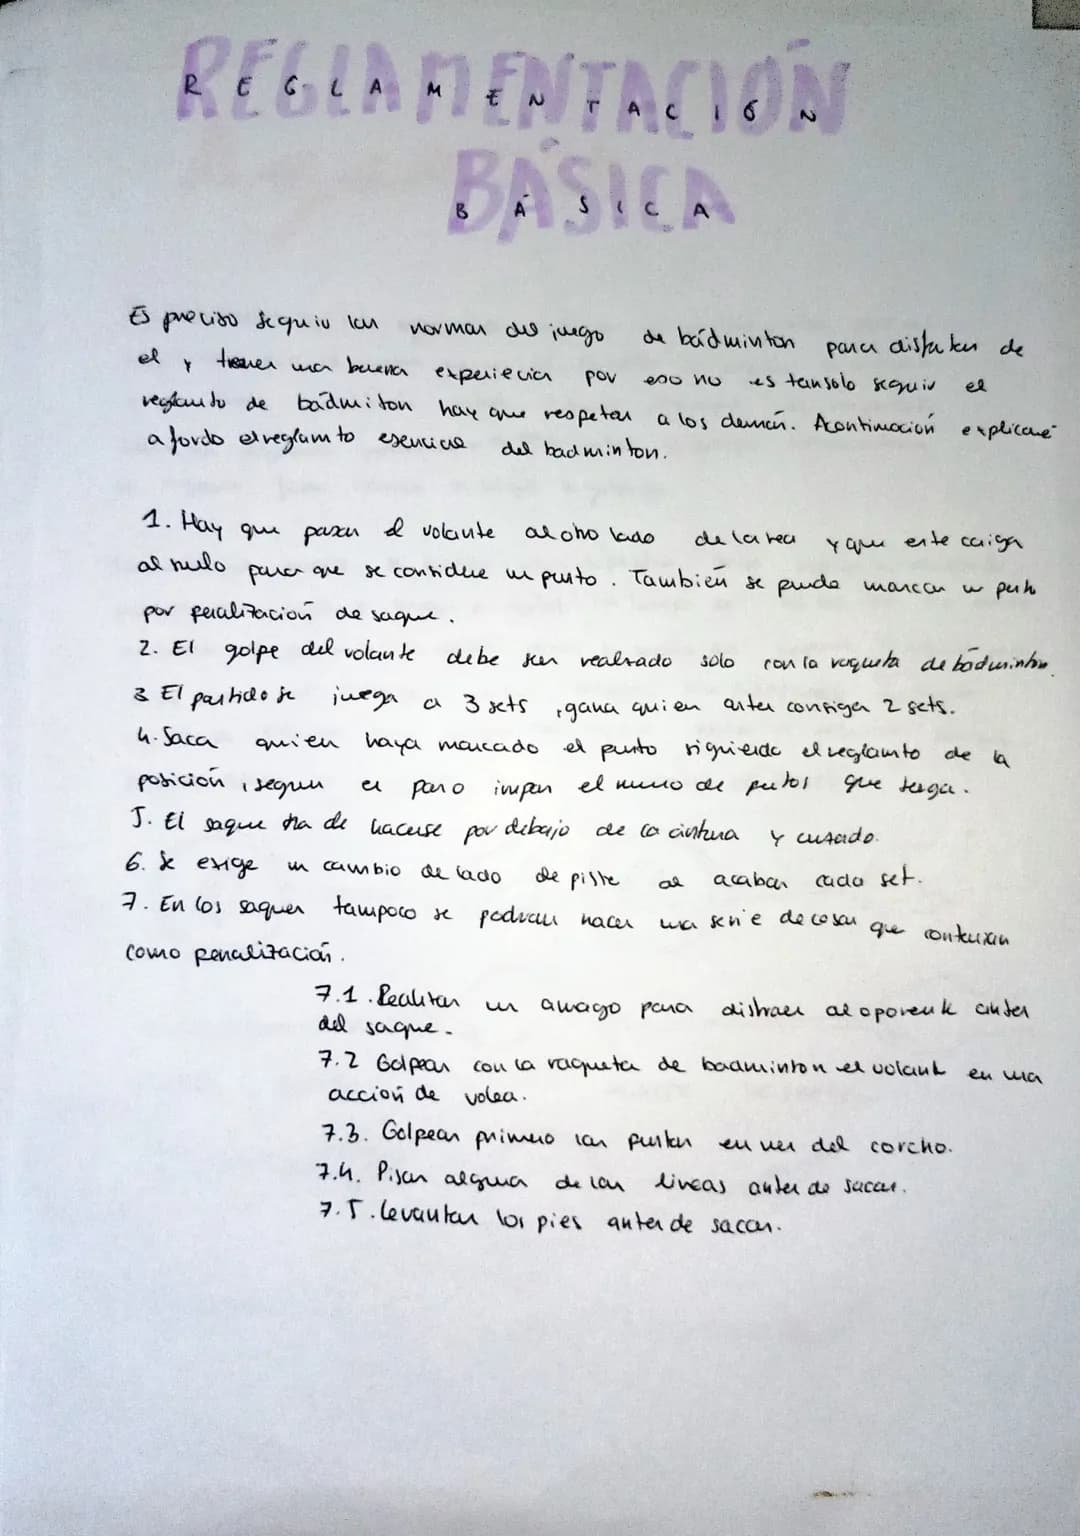 REGLAMENTACIÓN
BÁSICA
Es preciso seguir las normas del juego de bádminton para disfrutar de
el y tener una buena experiecia por eso no es tansolo seguir el
reglamto de bádmiton hay que respetar a los demás. Acontinuación explicaré
a fordo el reglamto esencial del badminton.
1. Hay que pasar el volante al otro lado de la red y que este caiga
al suelo para que se considere un punto. También se puede marcar un punto
por penalización de saque.
2. El golpe del volante debe ser realizado solo con la raqueta de bádminton.
3 El partido se juega a 3 sets, gana quien antes consiga 2 sets.
4. Saca quien haya marcado el punto siguiendo el reglamto de la
posición, segun es par o impar el numero de puntos que tenga.
5. El saque ha de hacerse por debajo de la cintura y cruzado.
6. Se exige un cambio de lado de piste al acabar cada set.
7. En los saques tampoco se podran hacer una serie de cosas que contarian
como penalización.
7.1. Realizar un amago para distraer al oponente antes
del saque.
7.2 Golpear con la raqueta de badminton el volante en una
acción de volea.
7.3. Golpear primero las plumas en vez del corcho.
7.4. Pisar alguna de las lineas antes de sacar.
7.5. Levantar los pies antes de sacar.